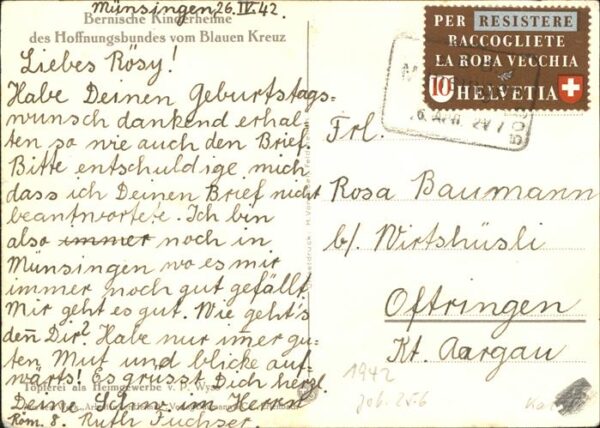 Münsingen, 26.IV.42.
Bernische Kinderheime
des Hoffnungsbundes vom Blauen Kreuz
Liebes Rösy!
Habe Deinen Geburtstags-
wunsch dankend erhal-
ten so wie auch den Brief.
Bitte entschuldige mich
dass ich Deinen Brief nicht
beantwortete. Ich bin
also immer noch in
Münsingen wo es mir
immer noch gut gefällt
Mir geht es gut. Wie geht's
den̄ Dir? Habe nur imer gu-
ten Mut und blicke auf-
wärts! Es grüsst Dich herzl.
Deine Schw. im Herrn
Röm. 8. Ruth Fuchser
Töpferei als Heimgewerbe v. P. Wyss
PER RESISTERE
RACCOGLIETE
LA ROBA VECCHIA
10 HELVETIA
Frl.
Rosa Baumann
b/ Wirtshüsli
Oftringen
Kt. Aargau
1942